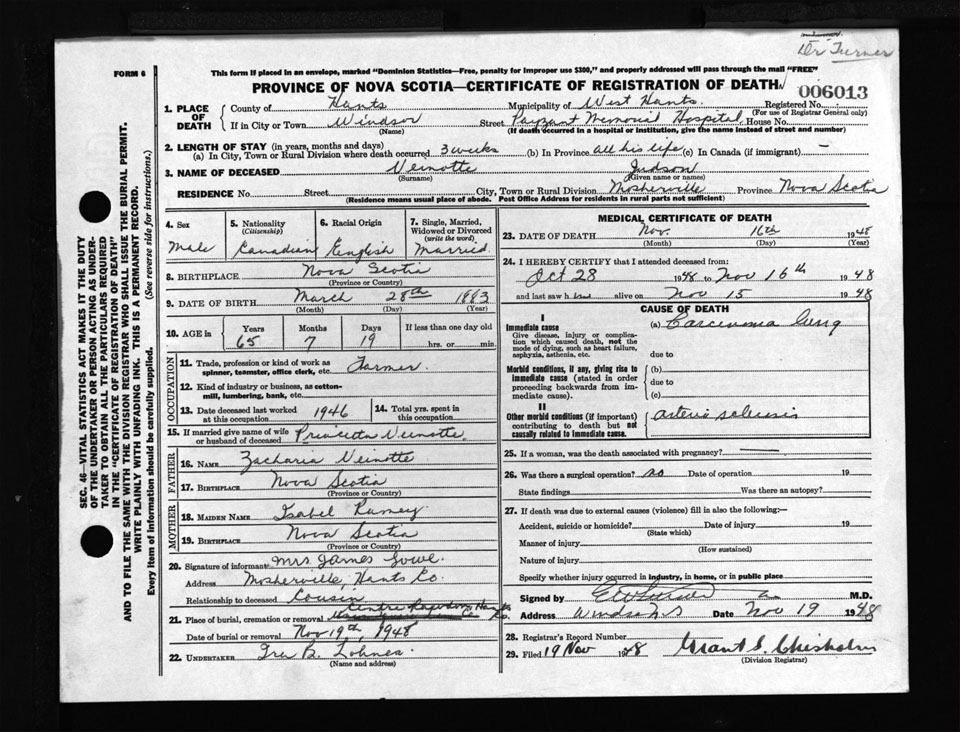 Dr Turner
FORM 6
This form if placed in an envelope, marked "Dominion Statistics—Free, penalty for improper use $300," and properly addressed will pass through the mail "FREE"
PROVINCE OF NOVA SCOTIA—CERTIFICATE OF REGISTRATION OF DEATH
006013
1. PLACE OF DEATH
County of Hants Municipality of West Hants. Registered No.
(For use of Registrar General only)
If in City or Town Windsor Street Payzant Memorial Hospital House No.
(Name) (If death occurred in a hospital or institution, give the name instead of street and number)
2. LENGTH OF STAY (in years, months and days)
(a) In City, Town or Rural Division where death occurred 3 weeks (b) In Province all his life (c) In Canada (if immigrant) —
3. NAME OF DECEASED Veinotte Judson
(Surname) (Given name or names)
RESIDENCE No. Street City, Town or Rural Division Mosherville Province Nova Scotia
(Residence means usual place of abode. Post Office Address for residents in rural parts not sufficient)
4. Sex
Male
5. Nationality
(Citizenship)
Canadian
6. Racial Origin
English
7. Single, Married, Widowed or Divorced
(write the word)
Married
8. BIRTHPLACE Nova Scotia
(Province or Country)
9. DATE OF BIRTH March 28th 1883
(Month) (Day) (Year)
10. AGE in Years Months Days If less than one day old
65 7 19 hrs. or min.
OCCUPATION
11. Trade, profession or kind of work as spinner, teamster, office clerk, etc. Farmer.
12. Kind of industry or business, as cotton-mill, lumbering, bank, etc.
13. Date deceased last worked at this occupation 1946
14. Total yrs. spent in this occupation
15. If married give name of wife or husband of deceased Princetta Veinotte
FATHER
16. NAME Zacharia Veinotte
17. BIRTHPLACE Nova Scotia
(Province or Country)
MOTHER
18. MAIDEN NAME Isabel Ramey
19. BIRTHPLACE Nova Scotia
(Province or Country)
20. Signature of informant Mrs James
Address Mosherville, Hants Co.
Relationship to deceased Cousin
21. Place of burial, cremation or removal Centre Rawdon Hants Co.
Date of burial or removal Nov 19th, 1948
22. UNDERTAKER Ira B. Lohnes
(Name and address)
MEDICAL CERTIFICATE OF DEATH
23. DATE OF DEATH Nov. 16th 1948
(Month) (Day) (Year)
24. I HEREBY CERTIFY that I attended deceased from:
Oct 28 1948 to Nov 16th 1948
and last saw him alive on Nov 15 1948
CAUSE OF DEATH
I
Immediate cause
Give disease, injury or complication which caused death, not the mode of dying, such as heart failure, asphyxia, asthenia, etc.
(a) Carcinoma Lung
due to
Morbid conditions, if any, giving rise to immediate cause (stated in order proceeding backwards from immediate cause).
(b)
due to
(c)
II
Other morbid conditions (if important) contributing to death but not causally related to immediate cause.
arterio sclerosis
25. If a woman, was the death associated with pregnancy? —
26. Was there a surgical operation? no Date of operation 19
State findings Was there an autopsy?
27. If death was due to external causes (violence) fill in also the following:—
Accident, suicide or homicide? Date of injury 19
(State which)
Manner of injury
(How sustained)
Nature of injury
Specify whether injury occurred in industry, in home, or in public place
Signed by M.D.
Address Windsor NS Date Nov 19 1948
28. Registrar's Record Number
29. Filed 19 Nov 1948 Grant S. Chisholm
(Division Registrar)
SEC. 46—VITAL STATISTICS ACT MAKES IT THE DUTY
OF THE UNDERTAKER OR PERSON ACTING AS UNDER-
TAKER TO OBTAIN ALL THE PARTICULARS REQUIRED
IN THE "CERTIFICATE OF REGISTRATION OF DEATH"
AND TO FILE THE SAME WITH THE DIVISION REGISTRAR WHO SHALL ISSUE THE BURIAL PERMIT.
WRITE PLAINLY WITH UNFADING INK. THIS IS A PERMANENT RECORD.
Every item of information should be carefully supplied. (See reverse side for instructions.)